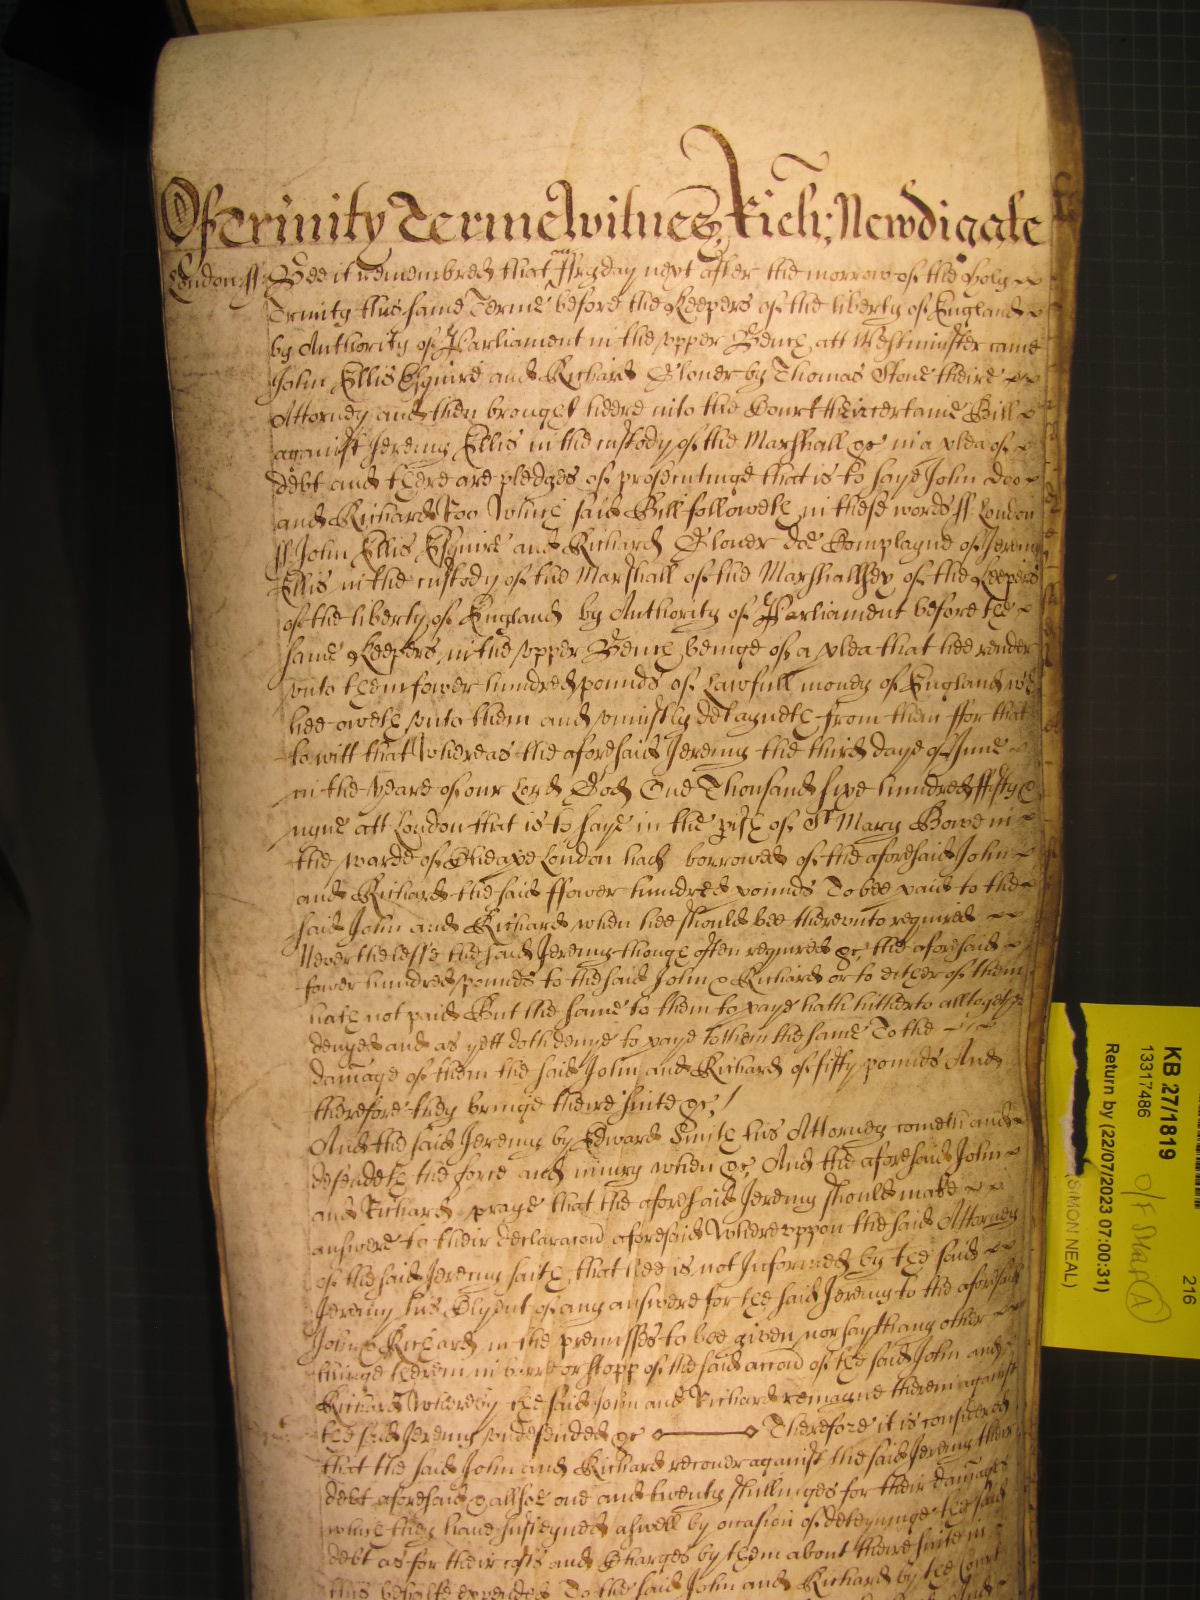 Of Trinity Terme Witnes Rich: Newdigate
London ss Bee it remembred that ffryday next after the morrow of the Holy
Trinity this same Terme before the Keepers of the liberty of England
by Authority of Parliament in the upper Bench att Westminster came
John Ellis Esquire and Richard Glover by Thomas Stone theire
Attorney and then brought heere into the Court theire certaine Bill
against Jeremy Ellis in the custody of the Marshall &c in a plea of
debt and there are pledges of prosecutinge that is to saye John Doo
and Richard Roo Which said Bill followeth in these words ss London
ss John Ellis Esquire and Richard Glover doe Complayne of Jeremy
Ellis in the custody of the Marshall of the Marshallsey of the Keepers
of the liberty of England by Authority of Parliament before the
same Keepers in the upper Bench beinge of a plea that hee render
unto them fower hundred pounds of lawfull money of England wch
hee oweth unto them and uniustly detayneth from them ffor that
to witt that Whereas the aforesaid Jeremy the third daye of June
in the yeare of our Lord God One Thousand sixe hundred ffifty &
nyne att London that is to saye in the pish of St Mary Bowe in
the warde of Cheape London had borrowed of the aforesaid John
and Richard the said ffower hundred pounds To bee paid to the
said John and Richard when hee should bee thereunto required
Neverthelesse the said Jeremy though often required &c the aforesaid
fower hundred pounds to the said John & Richard or to either of them
hath not paid But the same to them to paye hath hitherto alltogether
denyed and as yett doth denye to paye to them the same To the
damage of them the said John and Richard of fifty pounds And
therefore they bringe theire suite &c
And the said Jeremy by Edward Smith his Attorney cometh and
defendeth the force and iniury when &c And the aforesaid John
and Richard praye that the aforesaid Jeremy should make
answere to their declaracon aforesaid Whereuppon the said Attorney
of the said Jeremy saith that hee is not Informed by the said
Jeremy his Clyent of any answere for the said Jeremy to the aforesaid
John & Richard in the premisses to bee given nor sayth any other
thinge therein in barre or stopp of the said accon of the said John and
Richard Whereby the said John and Richard remayne therein against
the said Jeremy undefended &c Therefore it is considered
that the said John and Richard recover against the said Jeremy their
debt aforesaid & allsoe one and twenty shillinges for their damages
which they have susteyned aswell by occasion of deteyninge the said
debt as for their costs and Charges by them about theire suite in
this behalfe expended To the said John and Richard by the Court
KB 27/1819
13317486
Return by (22/07/2023 07:00:31)
SIMON NEAL)
216